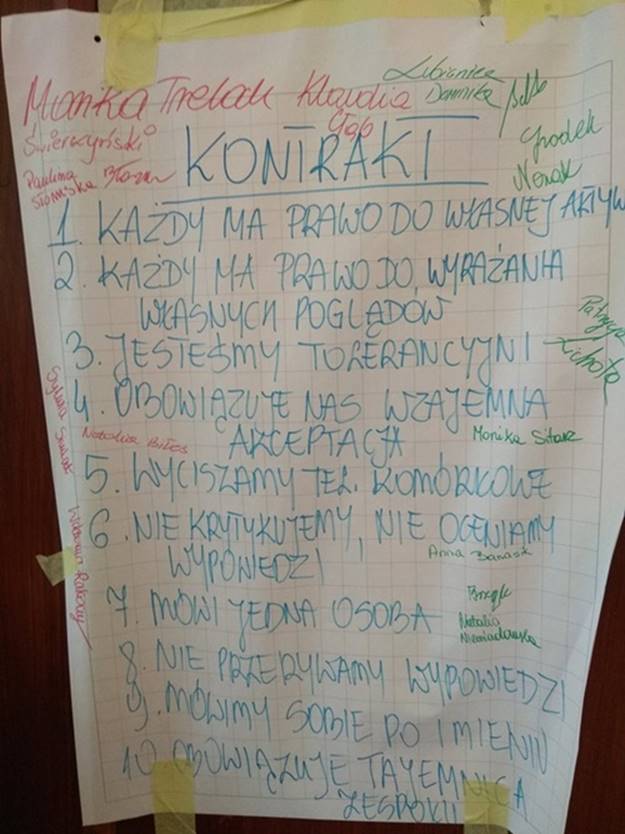 Monika Trelak Klaudia
Głąb
Dominika
Świerczyński
Paulina
Słomska
Grodek
Nowak
KONTRAKT
1. KAŻDY MA PRAWO DO WŁASNEJ AKTYW
2. KAŻDY MA PRAWO DO WYRAŻANIA
WŁASNYCH POGLĄDÓW
3. JESTEŚMY TOLERANCYJNI
Lichota
4. OBOWIĄZUJE NAS WZAJEMNA
AKCEPTACJA
Natalia
Monika Sitarz
5. WYCISZAMY TEL. KOMÓRKOWE
6. NIE KRYTYKUJEMY, NIE OCENIAMY
WYPOWIEDZI
Anna Banasik
7. MÓWI JEDNA OSOBA
Natalia
Niewiadomska
8. NIE PRZERYWAMY WYPOWIEDZI
9. MÓWIMY SOBIE PO IMIENIU
10. OBOWIĄZUJE TAJEMNICA
ZESPOŁU